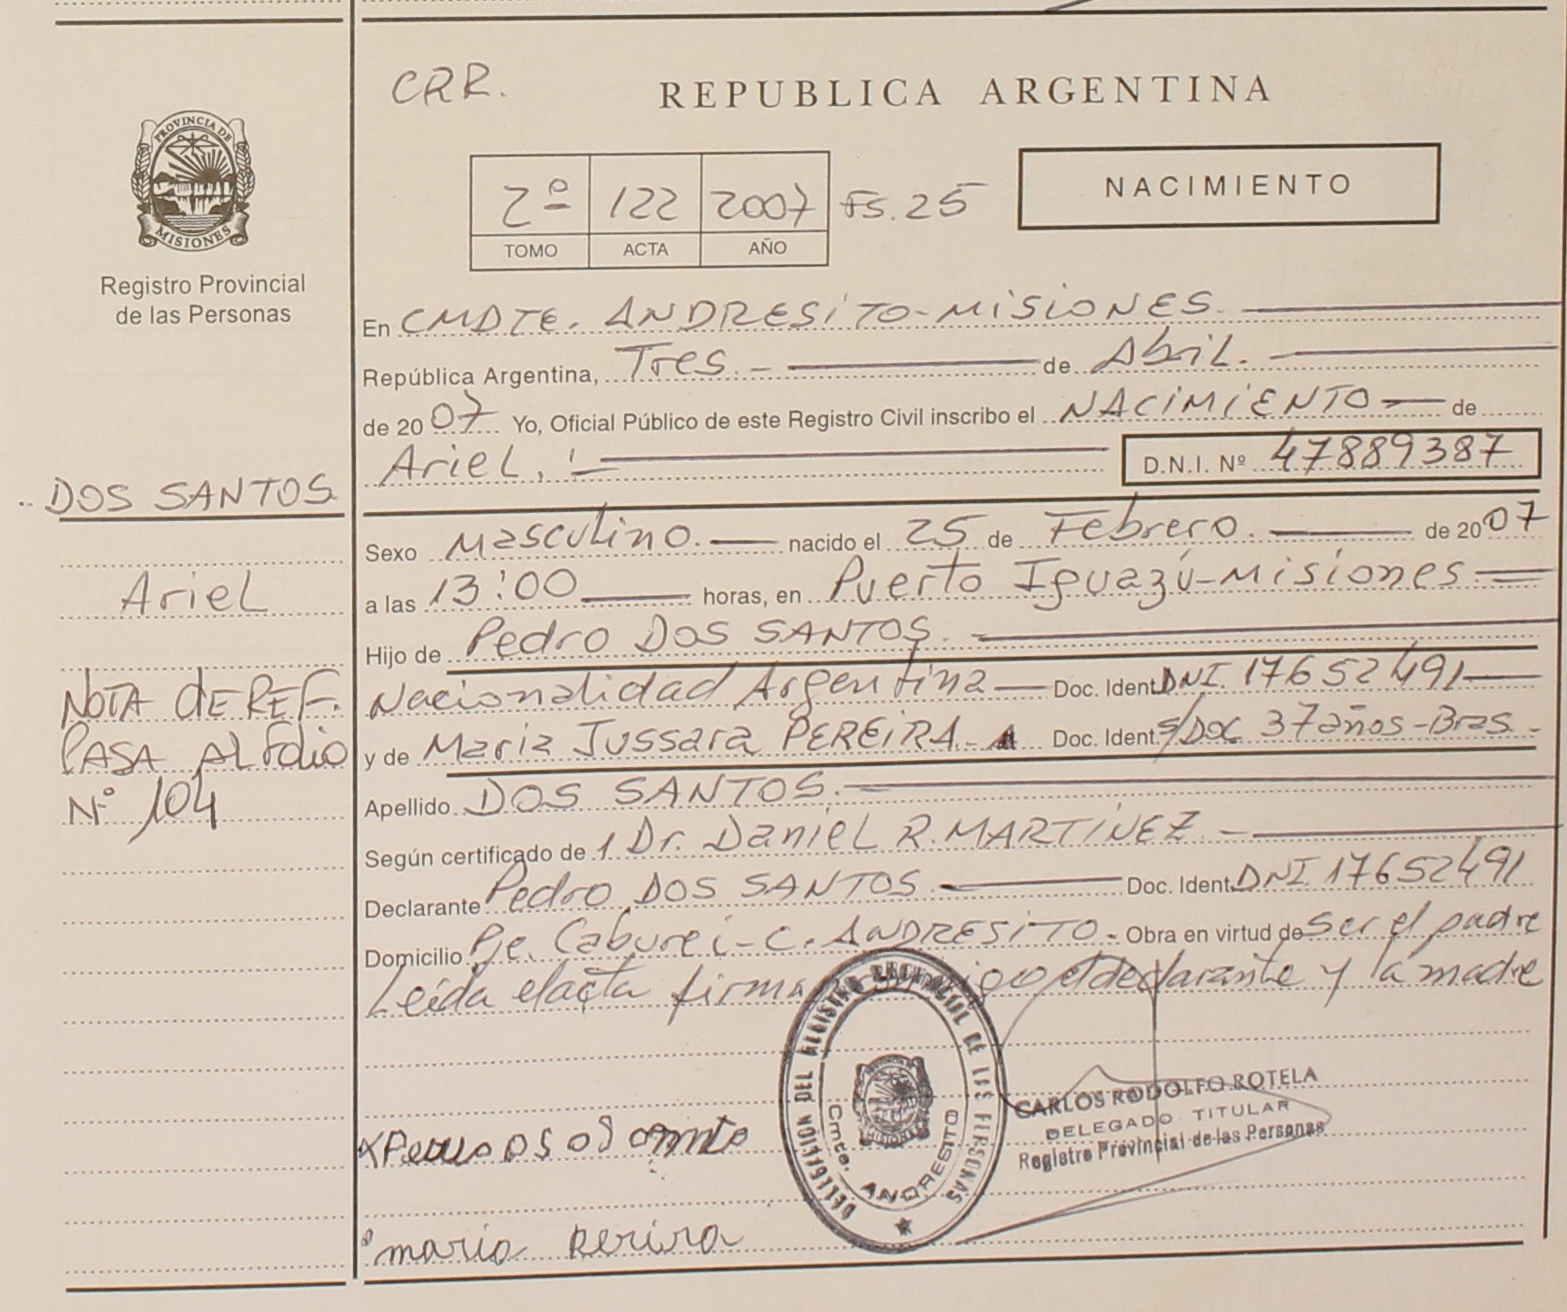 CRR.
REPUBLICA ARGENTINA
PROVINCIA DE
MISIONES
Registro Provincial
de las Personas
2º 122 2007 FS. 25
TOMO ACTA AÑO
NACIMIENTO
En CMDTE. ANDRESITO-MISIONES.
República Argentina, Tres.- de Abril.
de 2007 Yo, Oficial Público de este Registro Civil inscribo el NACIMIENTO de
Ariel.
D.N.I. Nº 47889387
DOS SANTOS
Ariel
NOTA dE REF.
PASA AL FOLIO
Nº 104
Sexo Masculino. nacido el 25 de Febrero. de 2007
a las 13:00 horas, en Puerto Iguazú-Misiones.
Hijo de Pedro DOS SANTOS.
Nacionalidad Argentina Doc. Ident. DNI. 17652491
y de Maria Jussara PEREIRA. Doc. Ident. s/Doc 37 años-Bras.-
Apellido DOS SANTOS.
Según certificado de 1 Dr. Daniel R. MARTINEZ.-
Declarante Pedro DOS SANTOS Doc. Ident. DNI 17652491
Domicilio Pje. Caburei-C. ANDRESITO- Obra en virtud de ser el padre
Leida el acta firma conmigo el declarante y la madre
DELEGACION DEL REGISTRO PROVINCIAL DE LAS PERSONAS
Cmte. ANDRESITO
MISIONES
CARLOS RODOLFO ROTELA
DELEGADO TITULAR
Registro Provincial de las Personas
maria